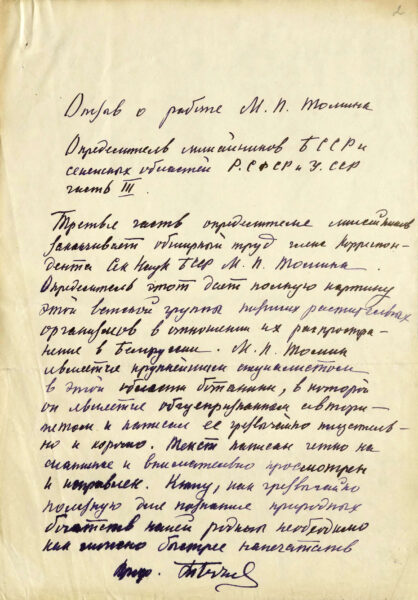 2
Отзыв о работе М. П. Томина
Определитель лишайников БССР и
смежных областей РСФСР и УССР
часть III.
Третья часть определителя лишайников
заканчивает обширный труд члена Корреспон-
дента Ак Наук БССР М. П. Томина.
Определитель этот дает полную картину
этой группы низших растительных
организмов в отношении их распростра-
нения в Белоруссии. М. П. Томин
является крупнейшим специалистом
в этой области ботаники, в которой
он является общепризнанным автори-
тетом и написал ее чрезвычайно тщатель-
но и хорошо. Текст написан четко на
машинке и внимательно просмотрен
и исправлен. Книгу, как чрезвычайно
полезную для познания природных
богатств нашей родины необходимо
как можно быстрее напечатать
Проф.